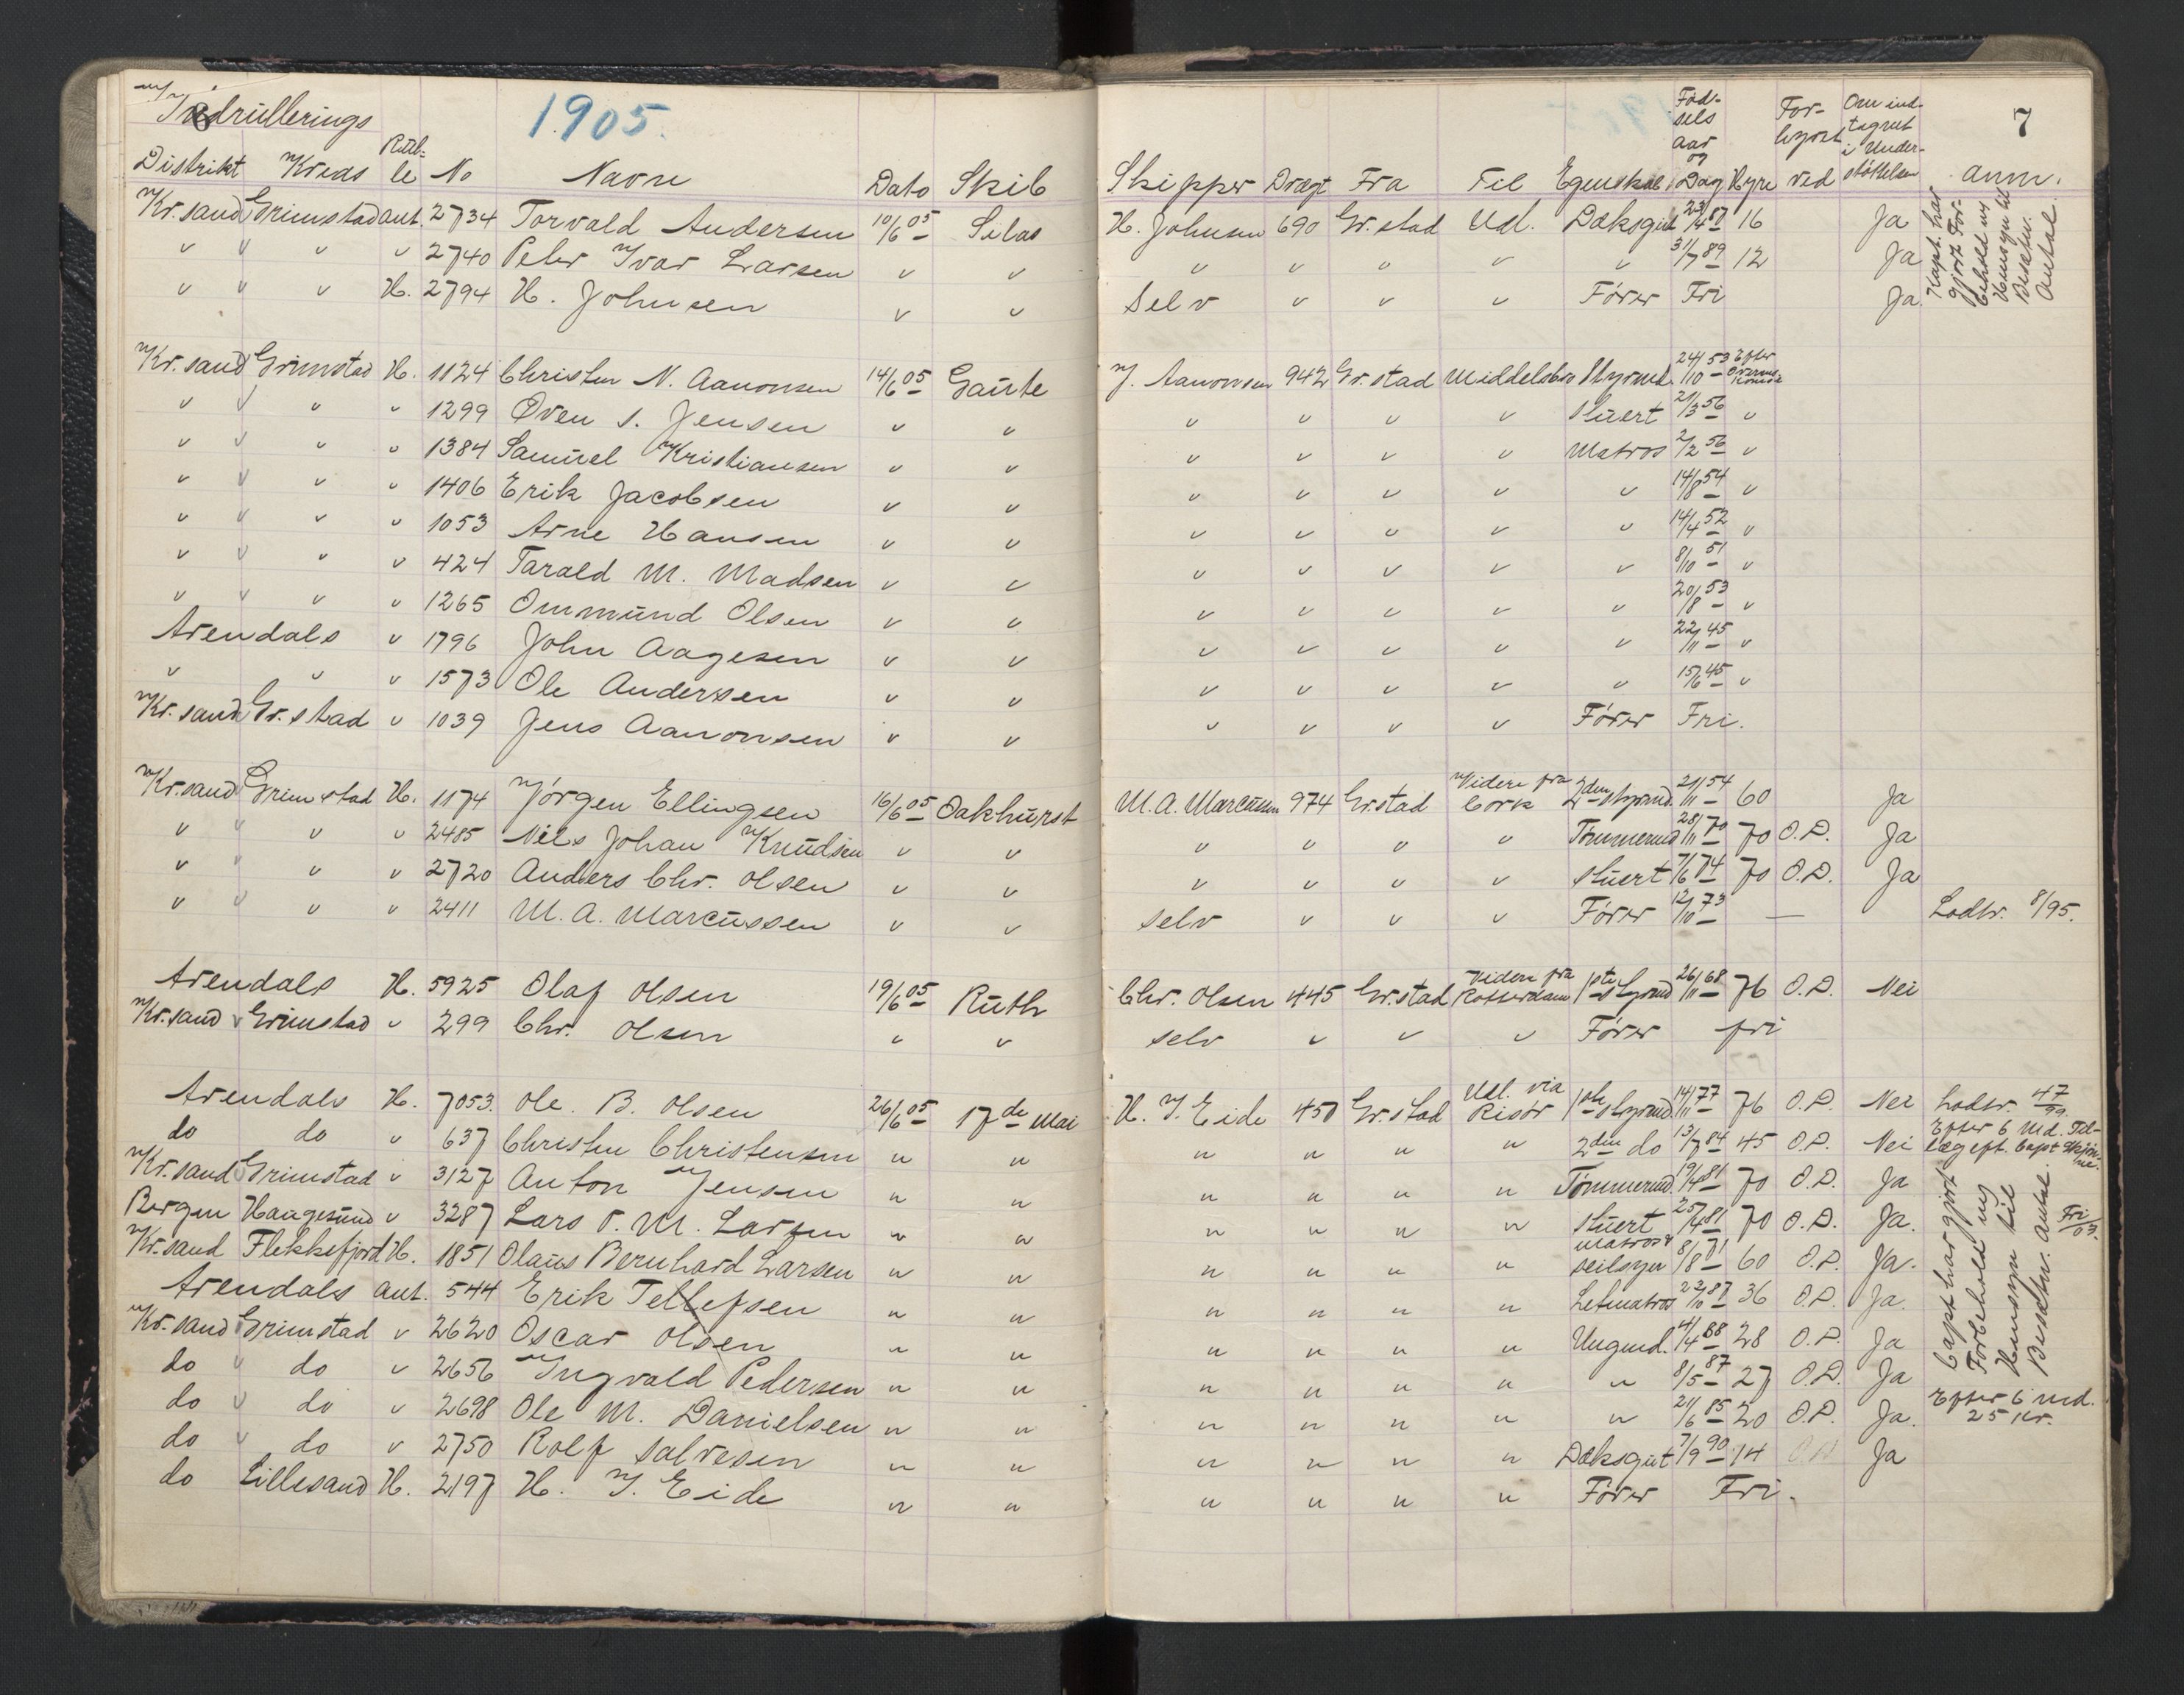 Indrullerings 1905.
Distrikt Kreds Rulle No Navn Dato Skib
Kr.sand Grimstad ant. 2734 Torvald Andersen 10/6 05 Silas
" " " " 2740 Peter Ivar Larsen " "
" " " H. 2794 H. Johnsen " "
Kr.sand Grimstad H. 1124 Christen N. Aanonsen 14/6 05 Gaute
" " " " 1299 Oven S. Jensen " "
" " " " 1384 Samuel Kristiansen " "
" " " " 1406 Erik Jacobsen " "
" " " " 1053 Arne Hansen " "
" " " " 424 Tarald M. Madsen " "
" " " " 1265 Ommund Olsen " "
Arendals " 1796 John Aagesen " "
" " " 1573 Ole Andersen " "
Kr.sand Gr.stad " 1039 Jens Aanonsen " "
Kr.sand Grimstad H. 1174 Jörgen Ellingsen 16/6 05 Oakhurst
" " " " 2485 Nils Johan Knudsen " "
" " " " 2720 Anders Chr. Olsen " "
" " " " 2411 M. A. Marcussen " "
Arendals H. 5925 Olaf Olsen 19/6 05 Ruth
Kr.sand " Grimstad " 299 Chr. Olsen " "
Arendals H. 7053. Ole. B. Olsen 26/6 05 17de Mai
do do " 637 Christen Christensen " "
Kr.sand Grimstad " 3127 Anton Jensen " "
Bergen Haagesund " 3287 Lars P. M. Larsen " "
Kr.sand Flekkefjord H. 1851 Olaus Bernhard Larsen " "
Arendals ant. 544 Erik Tellefsen " "
Kr.sand Grimstad " 2620 Oscar Olsen " "
do " do " 2656 Ingvald Pedersen " "
do " do " 2698 Ole M. Danielsen " "
do " do " 2750 Rolf Salvesen " "
do Lillesand H. 2197 H. J. Eide " "
7
Skipper Drægt Fra Til Egenskab Fødsels aar og Dag Hyre Forhyret ved Om indtegnet i Understöttelsen anm.
H. Johnsen 690 Gr.stad Udl. Dæksgut 23/4 87 16 Ja
" " " " " 31/7 89 12 Ja
Selv " " " Förer Fri Ja
Kapt. har gjort Forbehold m Hensyn til Besætn. Antal.
J. Aanonsen 942 Gr.stad Middelsbro Styrmd. 24/10 53 Efter Overenskomst
" " " " Stuert 21/3 56 "
" " " " Matros 2/2 56 "
" " " " " 14/8 54 "
" " " " " 14/4 52 "
" " " " " 8/10 51 "
" " " " " 20/8 53 "
" " " " " 22/11 45 "
" " " " " 15/6 45 "
" " " " Förer Fri.
M. A. Marcussen 974 Gr.stad Videre fra Cork 2den Styrmd. 21/11 54 60 Ja
" " " " Tömmermd 28/11 70 70 O.D. Ja
" " " " Stuert 7/6 74 70 O.D. Ja
Selv " " " Förer 12/10 73 — Lodtr. 8/95.
Chr. Olsen 445 Gr.stad Videre fra Rotterdam 1ste Styrmd 26/11 68 76 O.D. Nei
Selv " " " Förer fri
H. J. Eide 450 Gr.stad Udl. via Risör 1ste Styrmd 14/11 77 76 O.D. Nei Lodtr. 47/99.
" " " " 2den do 13/7 84 45 O.D. Nei Efter 6 Md. Tillæg eft. Capt Skjönne.
" " " " Tömmermd. 19/4 81 70 O.D. Ja
" " " " Stuert 25/4 81 70 O.D. Ja. Fri/03.
" " " " Matros & Seilsyer 8/8 71 60 O.D. Ja.
" " " " Letmatros 22/10 87 36 O.D. Ja
" " " " Ungmd. 4/4 88 28 O.D. Ja
" " " " " 8/5 87 27 O.D. Ja
" " " " " 21/6 85 20 O.D. Ja. Efter 6 md. 25 Kr.
" " " " Dæksgut 7/9 90 14 O.D. Ja
" " " " Förer Fri.
Capt har gjort Forbehold m Hensyn til Besætn. antal.